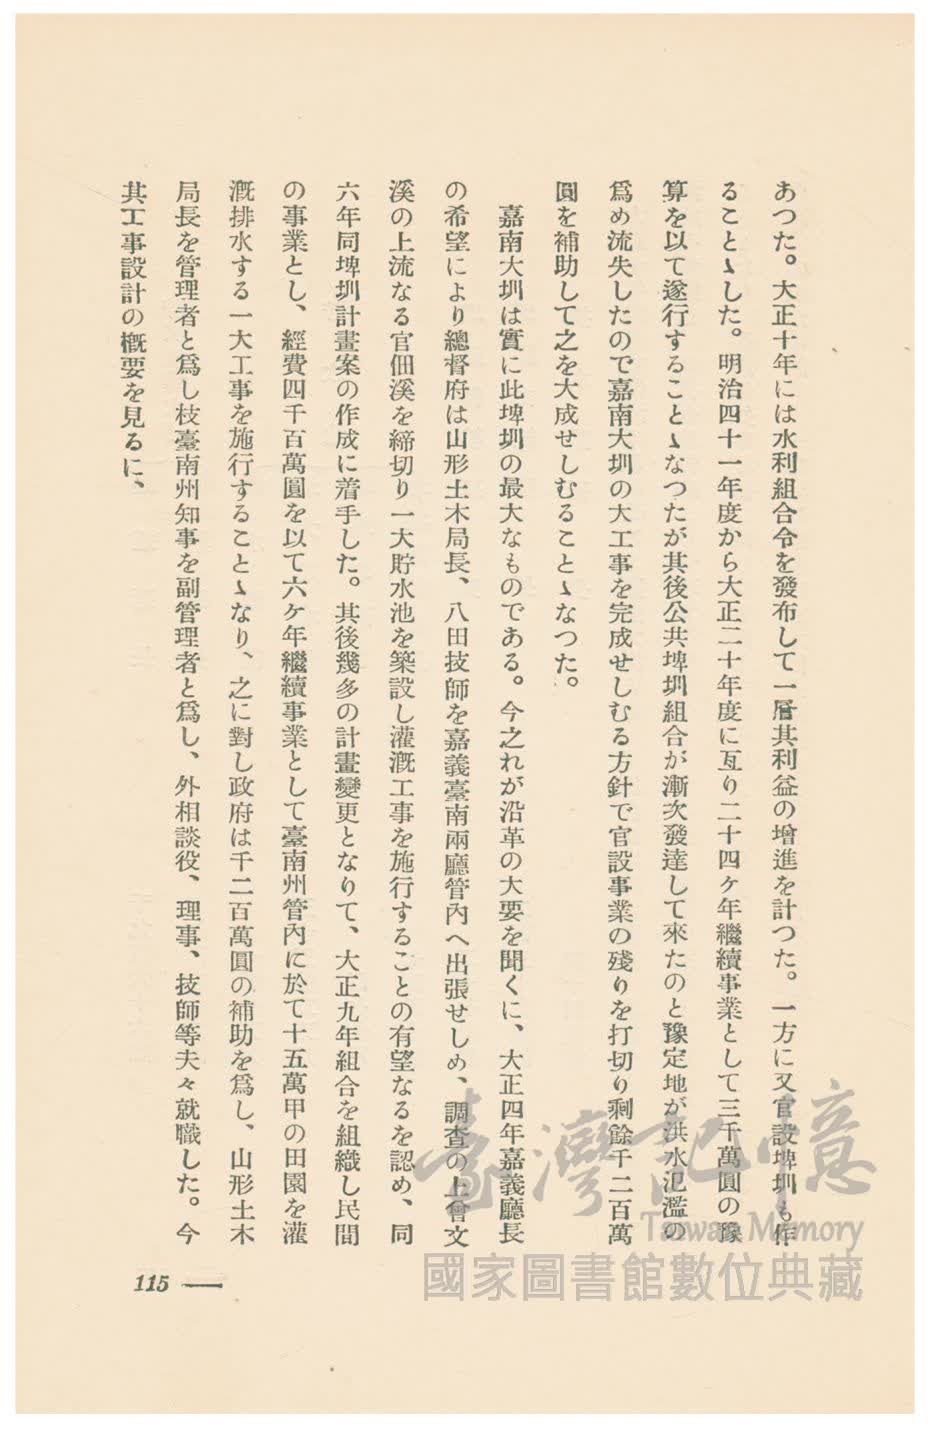 あつた。大正十年には水利組合令を發布して一層其利益の增進を計つた。一方に又官設埤圳も作
ることゝした。明治四十一年度から大正二十年度に亙り二十四ケ年繼續事業として三千萬圓の豫
算を以て遂行することゝなつたが其後公共埤圳組合が漸次發達して來たのと豫定地が洪水氾濫の
爲め流失したので嘉南大圳の大工事を完成せしむる方針で官設事業の殘りを打切り剩餘千二百萬
圓を補助して之を大成せしむることゝなつた。
嘉南大圳は實に此埤圳の最大なものである。今之れが沿革の大要を聞くに、大正四年嘉義廳長
の希望により總督府は山形土木局長、八田技師を嘉義臺南兩廳管內へ出張せしめ、調查の上曾文
溪の上流なる官佃溪を締切り一大貯水池を築設し灌漑工事を施行することの有望なるを認め、同
六年同埤圳計畫案の作成に着手した。其後幾多の計畫變更となりて、大正九年組合を組織し民間
の事業とし、經費四千百萬圓を以て六ケ年繼續事業として臺南州管內に於て十五萬甲の田園を灌
漑排水する一大工事を施行することゝなり、之に對し政府は千二百萬圓の補助を爲し、山形土木
局長を管理者と爲し枝臺南州知事を副管理者と爲し、外相談役、理事、技師等夫々就職した。今
其工事設計の槪要を見るに、
115
臺灣記憶
Taiwan Memory
國家圖書館數位典藏